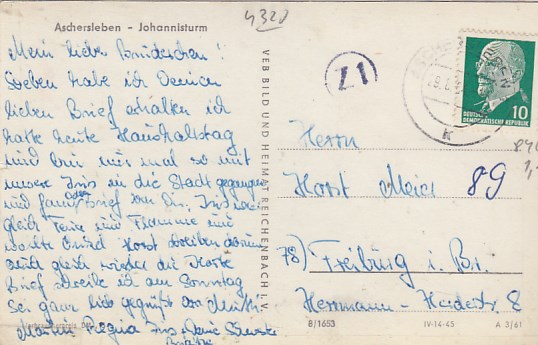 4320
Aschersleben - Johannisturm
Mein lieber Brüderchen!
Soeben habe ich Deinen
lieben Brief erhalten ich
hatte heute Haushaltstag
und bin mal so mit
unsere Iris in die Stadt gegangen
und fand der Brief von Dir, Iris war
gleich Feuer und Flamme und
wollte Onkel Horst schreiben darum
auch gleich wieder die Karte
Brief schreibe ich am Sonntag
Sei ganz lieb gegrüßt von Mutti
Martin Regina Iris Deine Schwester
VEB BILD UND HEIMAT REICHENBACH I. V.
Z1
10
DEUTSCHE
DEMOKRATISCHE REPUBLIK
Herrn
Horst Meier 89
78) Freiburg i. Br.
Herrmann-Heidestr. 8
B/1653 IV-14-45 A 3/61